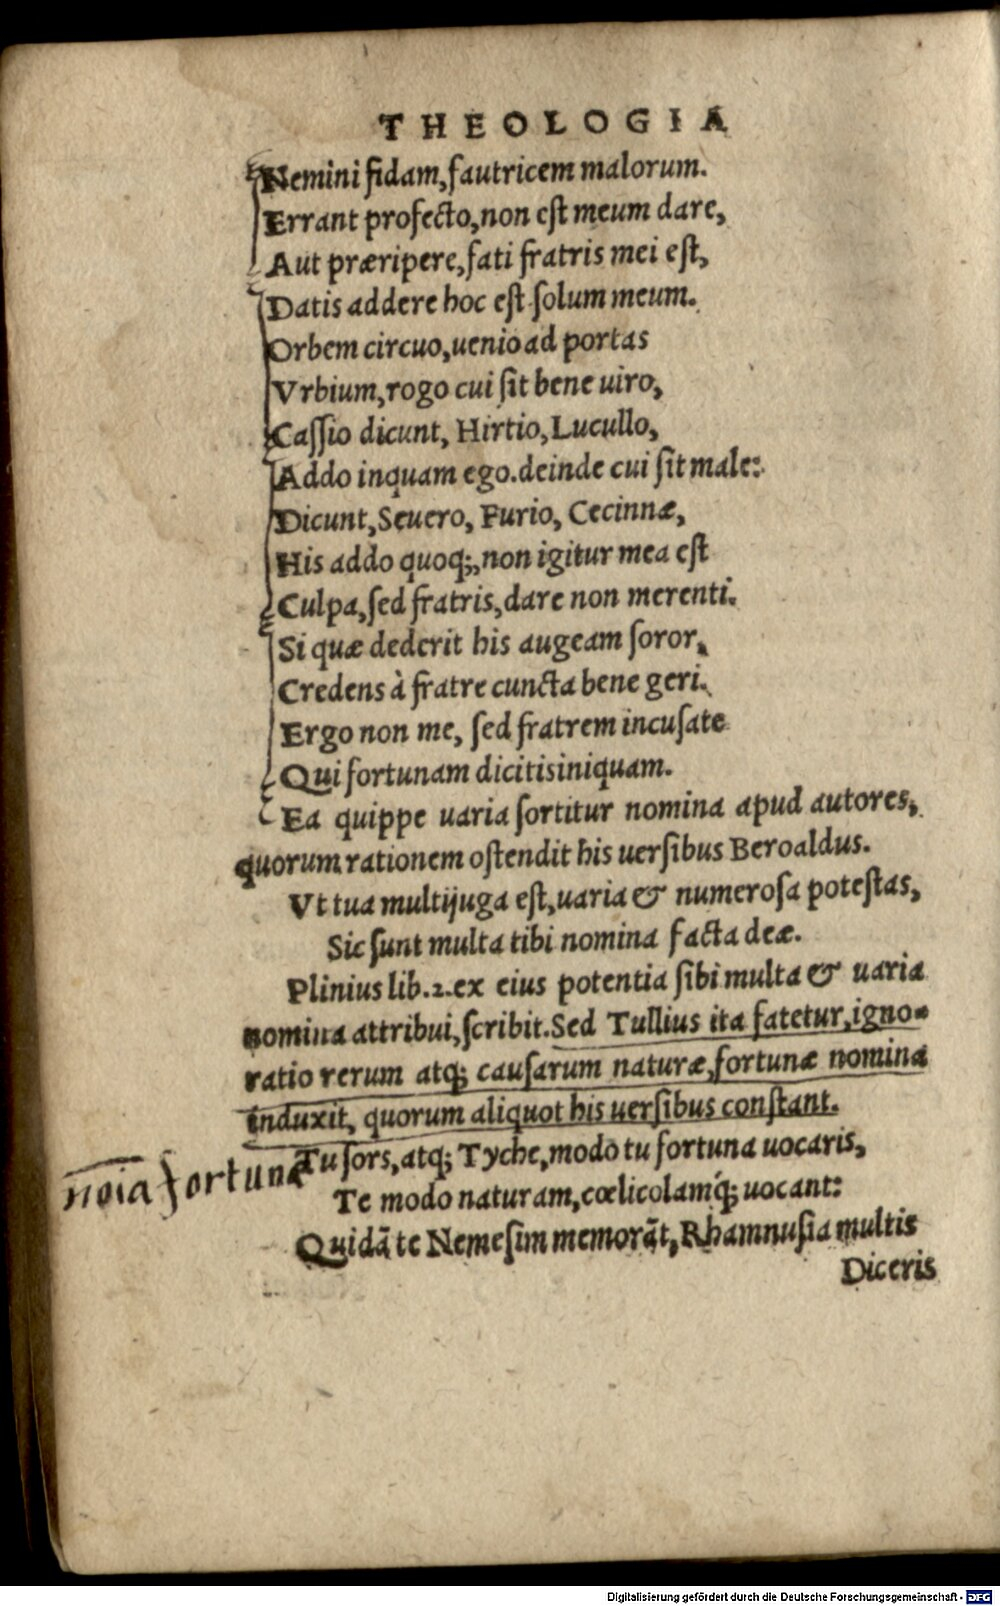 THEOLOGIA
Nemini fidam, fautricem malorum.
Errant profecto, non eſt meum dare,
Aut præripere, fati fratris mei eſt,
Datis addere hoc eſt ſolum meum.
Orbem circuo, uenio ad portas
Vrbium, rogo cui ſit bene uiro,
Caſſio dicunt, Hirtio, Lucullo,
Addo inquam ego. deinde cui ſit male:
Dicunt, Seuero, Furio, Cecinnæ,
His addo quoq;, non igitur mea eſt
Culpa, ſed fratris, dare non merenti.
Si quæ dederit his augeam ſoror,
Credens à fratre cuncta bene geri.
Ergo non me, ſed fratrem incuſate
Qui fortunam dicitis iniquam.
Ea quippe uaria ſortitur nomina apud autores,
quorum rationem oſtendit his uerſibus Beroaldus.
Vt tua multijuga eſt, uaria & numeroſa poteſtas,
Sic ſunt multa tibi nomina facta deæ.
Plinius lib. 2. ex eius potentia ſibi multa & uaria
nomina attribui, ſcribit. Sed Tullius ita fatetur, igno-
ratio rerum atq; cauſarum naturæ, fortunæ nomina
induxit, quorum aliquot his uerſibus conſtant.
Tu ſors, atq; Tyche, modo tu fortuna uocaris,
noīa fortunæ
Te modo naturam, cœlicolamq́; uocant:
Quidā te Nemeſim memorāt, Rhamnuſia multis
Diceris
Digitalisierung gefördert durch die Deutsche Forschungsgemeinschaft - DFG